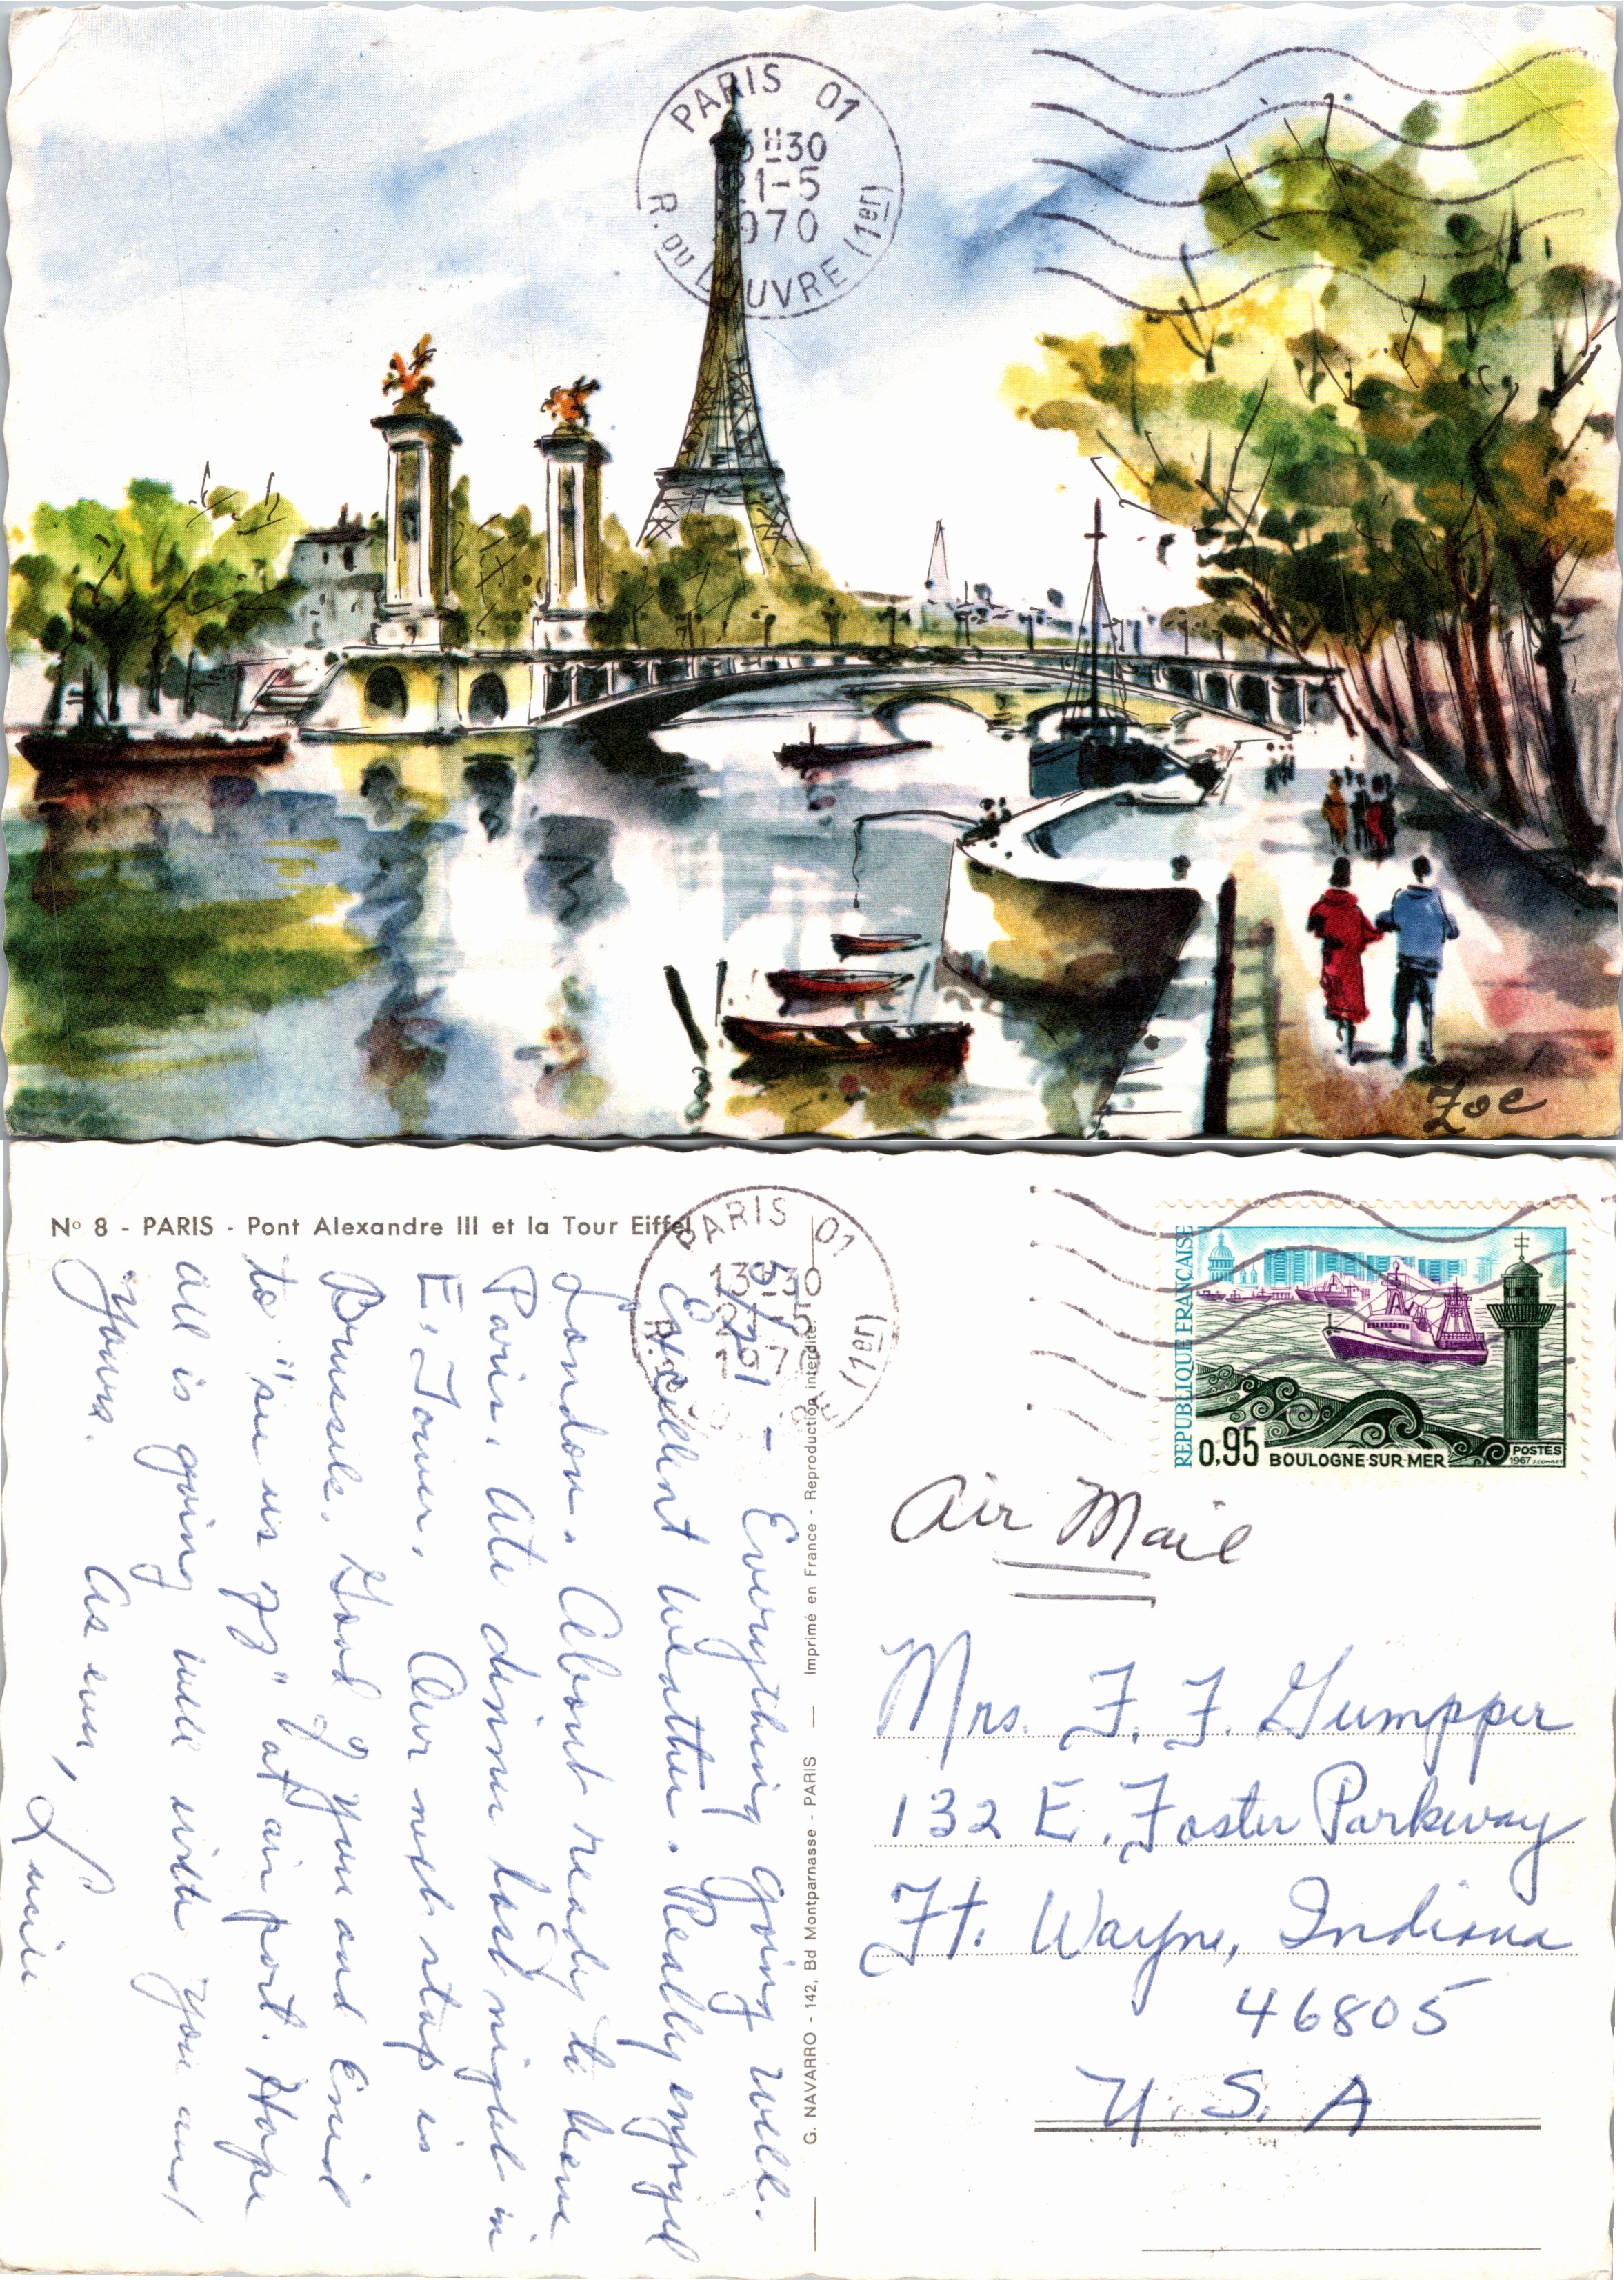 PARIS 01
13H30
21-5
1970
R. DU LOUVRE (1er)
Zoé
Nº 8 - PARIS - Pont Alexandre III et la Tour Eiffel
PARIS 01
13H30
21-5
197
R. DU RE (1er)
5/21 - Everything going well.
Excellent weather. Really enjoyed
London. About ready to leave
Paris. Ate dinner last night in
E. Tower. Our next stop is
Brussels. Good of you and Enid
to "see us off" at airport. Hope
all is going well with you and
yours.
As ever,
Lucile
G. NAVARRO - 142, Bd Montparnasse - PARIS — Imprimé en France - Reproduction interdite
REPUBLIQUE FRANCAISE
0,95 BOULOGNE-SUR-MER
POSTES
1967 J.COMBET
Air Mail
Mrs. F. F. Gumpper
132 E. Foster Parkway
Ft. Wayne, Indiana
46805
U.S.A